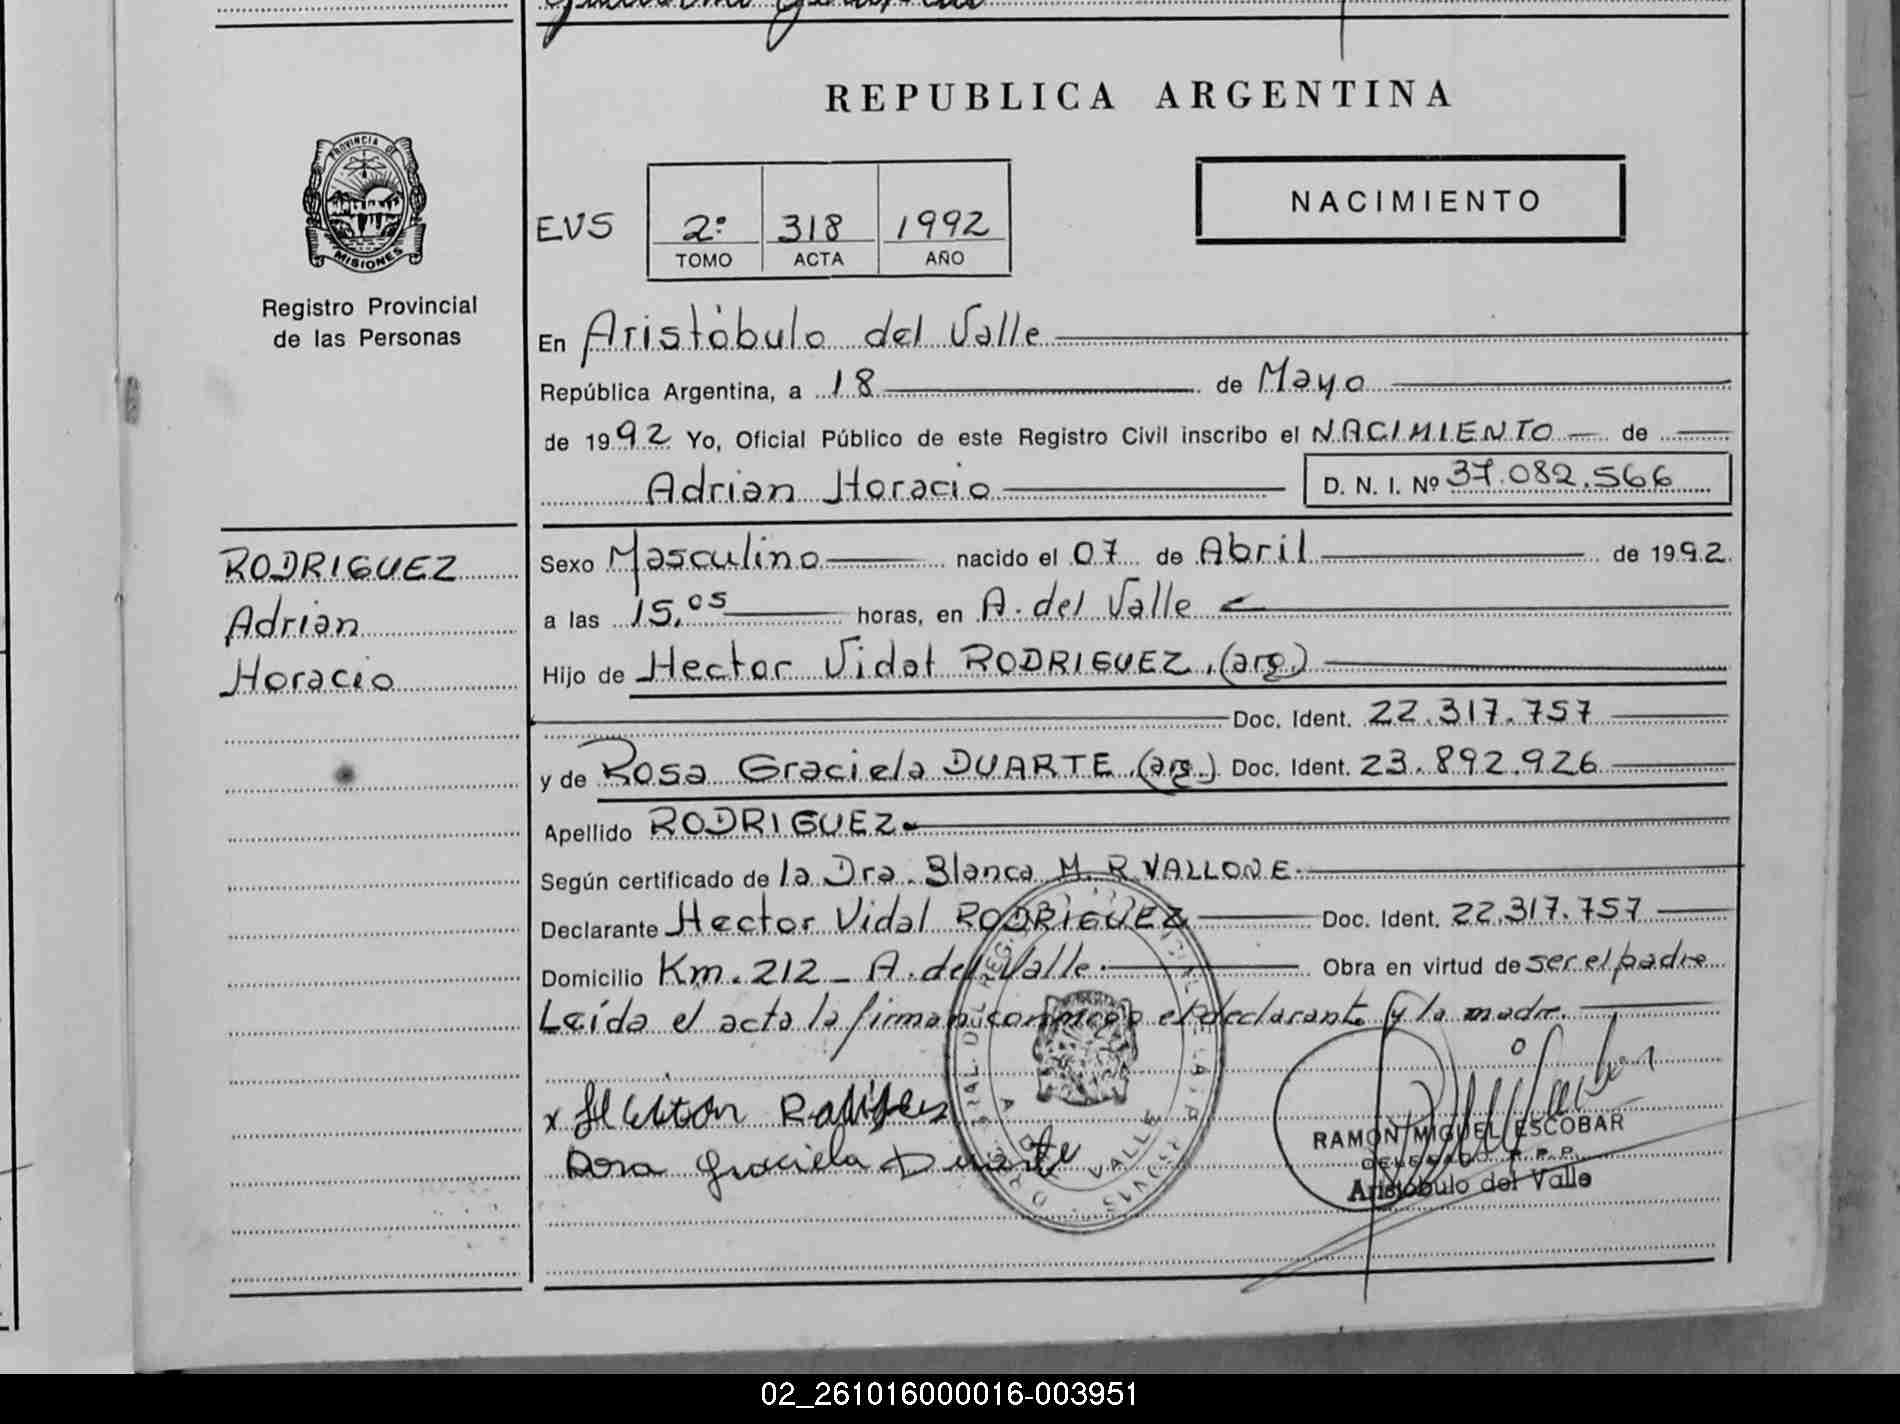 REPUBLICA ARGENTINA
PROVINCIA DE
MISIONES
Registro Provincial
de las Personas
EVS
2º 318 1992
TOMO ACTA AÑO
NACIMIENTO
En Aristóbulo del Valle
República Argentina, a 18 de Mayo
de 1992 Yo, Oficial Público de este Registro Civil inscribo el NACIMIENTO de
Adrian Horacio D. N. I. Nº 37.082.566
RODRIGUEZ
Adrian
Horacio
Sexo Masculino nacido el 07 de Abril de 1992
a las 15,05 horas, en A. del Valle
Hijo de Hector Vidal RODRIGUEZ, (arg.)
Doc. Ident. 22.317.757
y de Rosa Graciela DUARTE (arg.) Doc. Ident. 23.892.926
Apellido RODRIGUEZ
Según certificado de la Dra. Blanca M. R. VALLONE.
Declarante Hector Vidal RODRIGUEZ Doc. Ident. 22.317.757
Domicilio Km. 212 - A. del Valle. Obra en virtud de ser el padre
Leída el acta la firman conmigo el declarante y la madre.
x Hector
Rosa Graciela Duarte
VALLE
RAMON MIGUEL ESCOBAR
DELEGADO R. P. P.
Aristóbulo del Valle
02_261016000016-003951